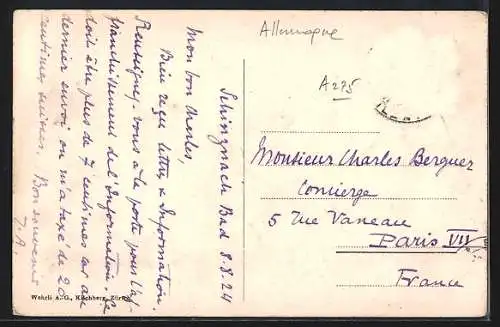 Allemagne
A 275
Schinznach Bad 8.8.24
Mon bon Charles,
Bien reçu lettre & Information.
Renseignez-vous à la poste pour l'af-
franchissement de l'Information. Ce
doit être plus de 7 centimes car au
dernier envoi on m'a taxé de 20
centimes suisses. Bon souvenir
J. A.
Monsieur Charles Berguer
Concierge
5 rue Vaneau
Paris VII
France
Wehrli A.-G., Kilchberg, Zürich